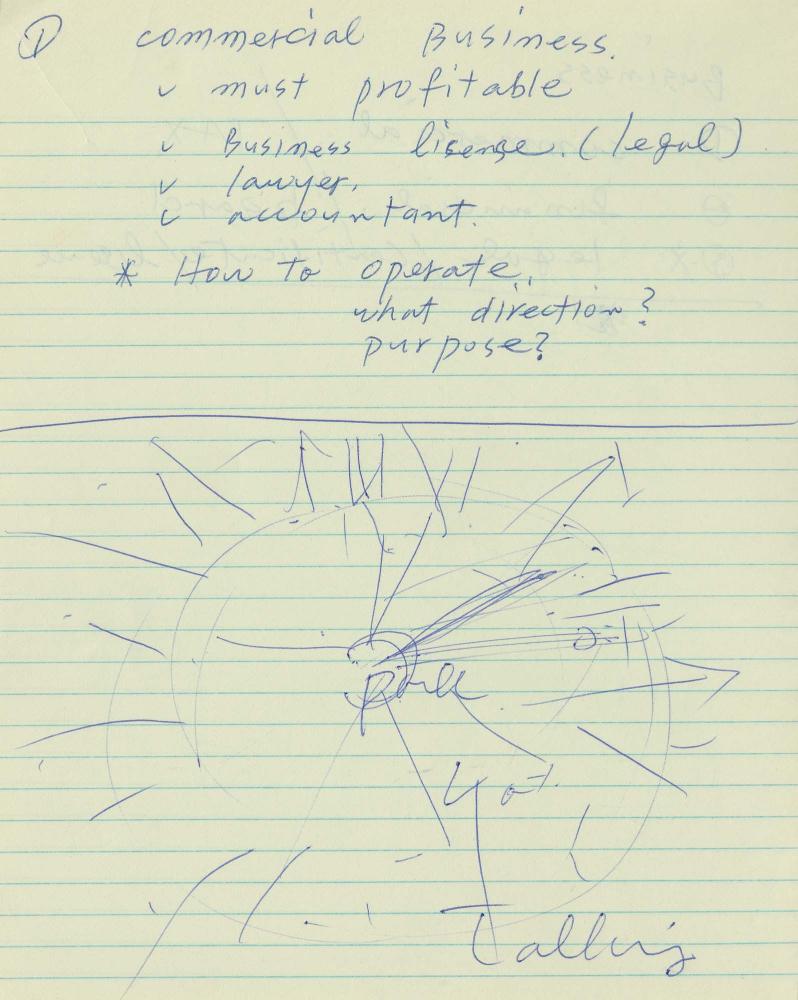 ① commercial Business.
✓ must profitable
✓ Business lisense. (legal)
✓ lawyer.
✓ accountant.
* How to operate,
what direction?
purpose?
Talking